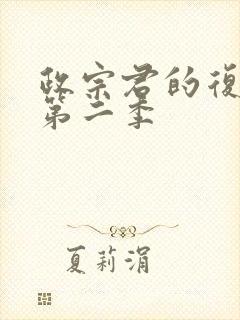 政宗君的復
第二季
夏莉涓